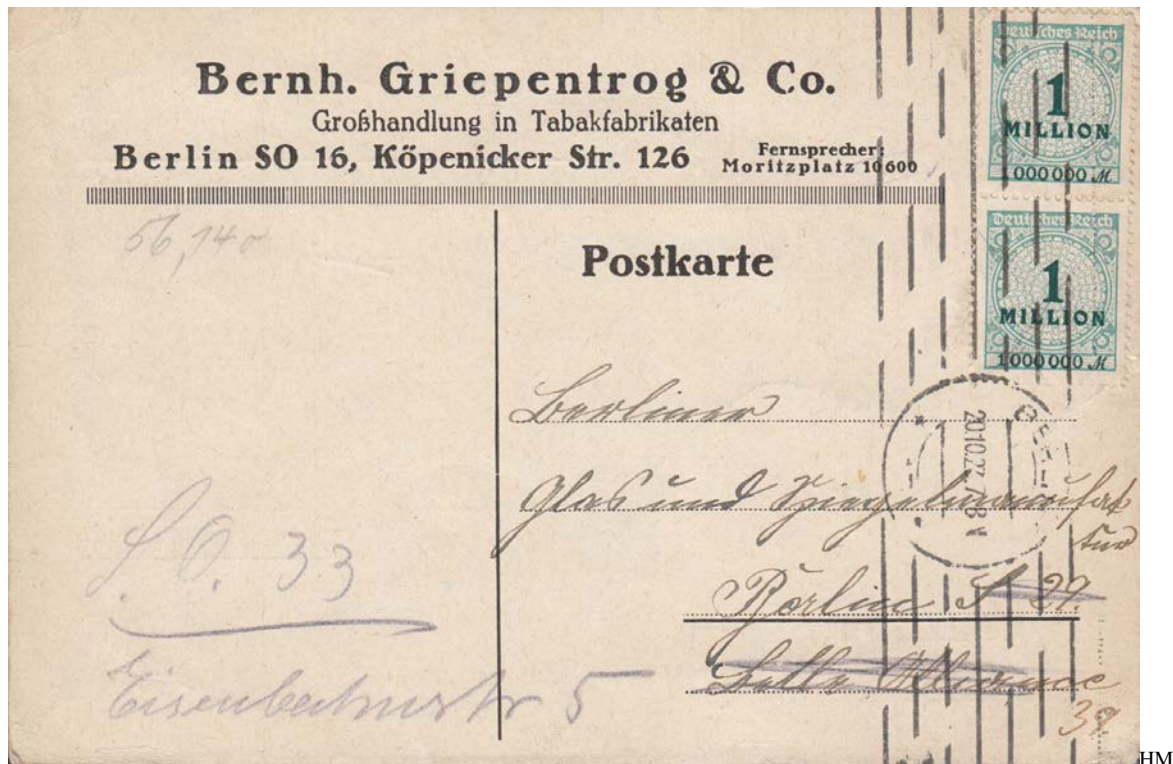 Bernh. Griepentrog & Co.
Großhandlung in Tabakfabrikaten
Berlin SO 16, Köpenicker Str. 126
Fernsprecher:
Moritzplatz 10600
Deutsches Reich
1
MILLION
000000 M
Deutsches Reich
1
MILLION
1000000 M
56,140
Postkarte
20.10.23.7-8V
Berliner
Glas und Spiegelmanufak
tur
Berlin S 29.
Belle Alliance
39
S.O. 33
Eisenbahnstr 5
HM